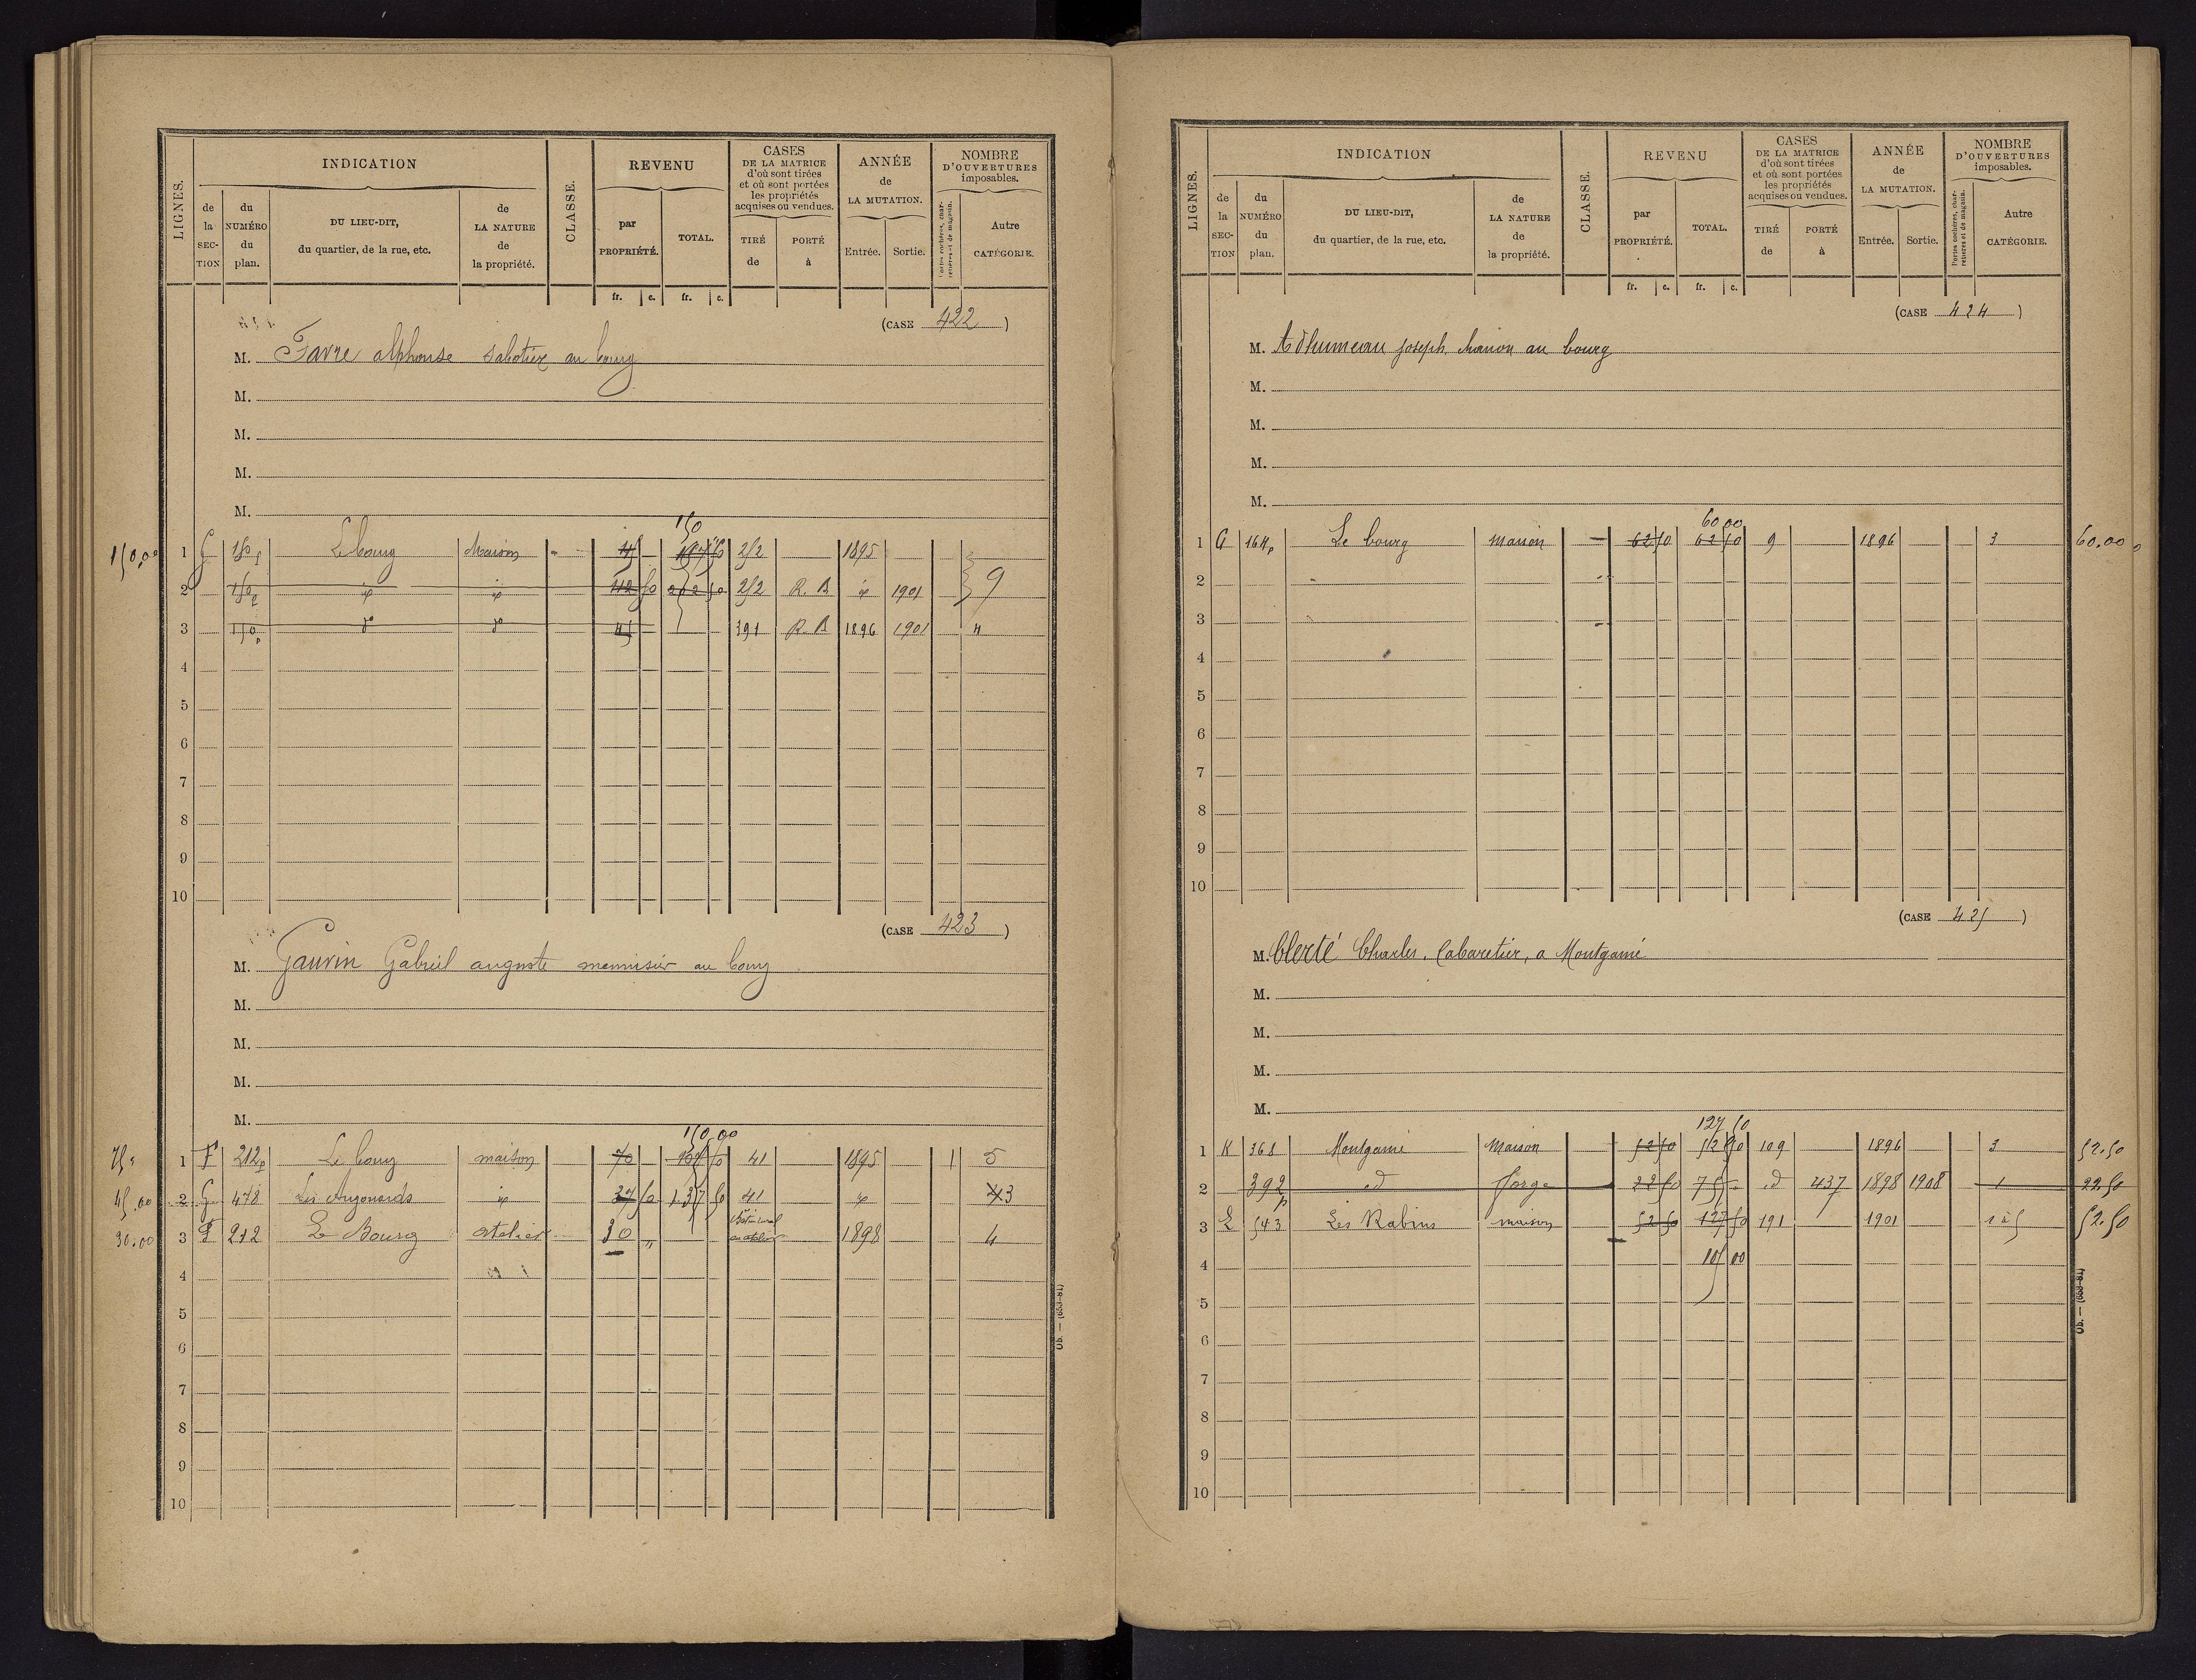 LIGNES.
INDICATION
de la SECTION
du NUMÉRO du plan.
DU LIEU-DIT, du quartier, de la rue, etc.
de LA NATURE de la propriété.
CLASSE.
REVENU
par PROPRIÉTÉ.
TOTAL.
fr. c. fr. c.
CASES DE LA MATRICE d'où sont tirées et où sont portées les propriétés acquises ou vendues.
TIRÉ de
PORTÉ à
ANNÉE de LA MUTATION.
Entrée. Sortie.
NOMBRE D'OUVERTURES imposables.
Portes cochères, charretières et de magasin.
Autre CATÉGORIE.
(CASE 422)
M. Favre alphonse sabotier au bourg
M.
M.
M.
M.
150
150,00 1 G 150p Le bourg Maison 45 252 1895
2 150p id id 112 50 202 50 252 R. B id 1901 9
3 150p do do 45 391 R. B 1896 1901 4
4
5
6
7
8
9
10
(CASE 423)
M. Gaurin Gabriel auguste menuisier au bourg
M.
M.
M.
M.
150,00
75, 1 F 212p Le bourg maison 70 107 50 41 1895 1 5
45,00 2 G 478 Les Augouards id 37 50 137 50 41 id 3
30.00 3 F 212 Le Bourg atelier 30 " 1898 4
4
5
6
7
8
9
10
Ob. — (653-81)
LIGNES.
INDICATION
de la SECTION
du NUMÉRO du plan.
DU LIEU-DIT, du quartier, de la rue, etc.
de LA NATURE de la propriété.
CLASSE.
REVENU
par PROPRIÉTÉ.
TOTAL.
fr. c. fr. c.
CASES DE LA MATRICE d'où sont tirées et où sont portées les propriétés acquises ou vendues.
TIRÉ de
PORTÉ à
ANNÉE de LA MUTATION.
Entrée. Sortie.
NOMBRE D'OUVERTURES imposables.
Portes cochères, charretières et de magasin.
Autre CATÉGORIE.
(CASE 424)
M. Adhumeau Joseph, Maçon au bourg
M.
M.
M.
M.
60 00
1 G 164p Le bourg Maison 62 50 62 50 9 1896 3 60.00
2
3
4
5
6
7
8
9
10
(CASE 425)
M. Clerté Charles, Cabaretier, a Montgamé
M.
M.
M.
M.
127 50
1 K 368 Montgamé Maison 52 50 52 50 109 1896 3 52.50
2 392p id forge 22 50 75 id 437 1898 1908 1 22.50
3 E 543 Les Rabins maison 52 50 127 50 191 1901 1 à 5 52.50
4 105 00
5
6
7
8
9
10
Ob. — (653-81)